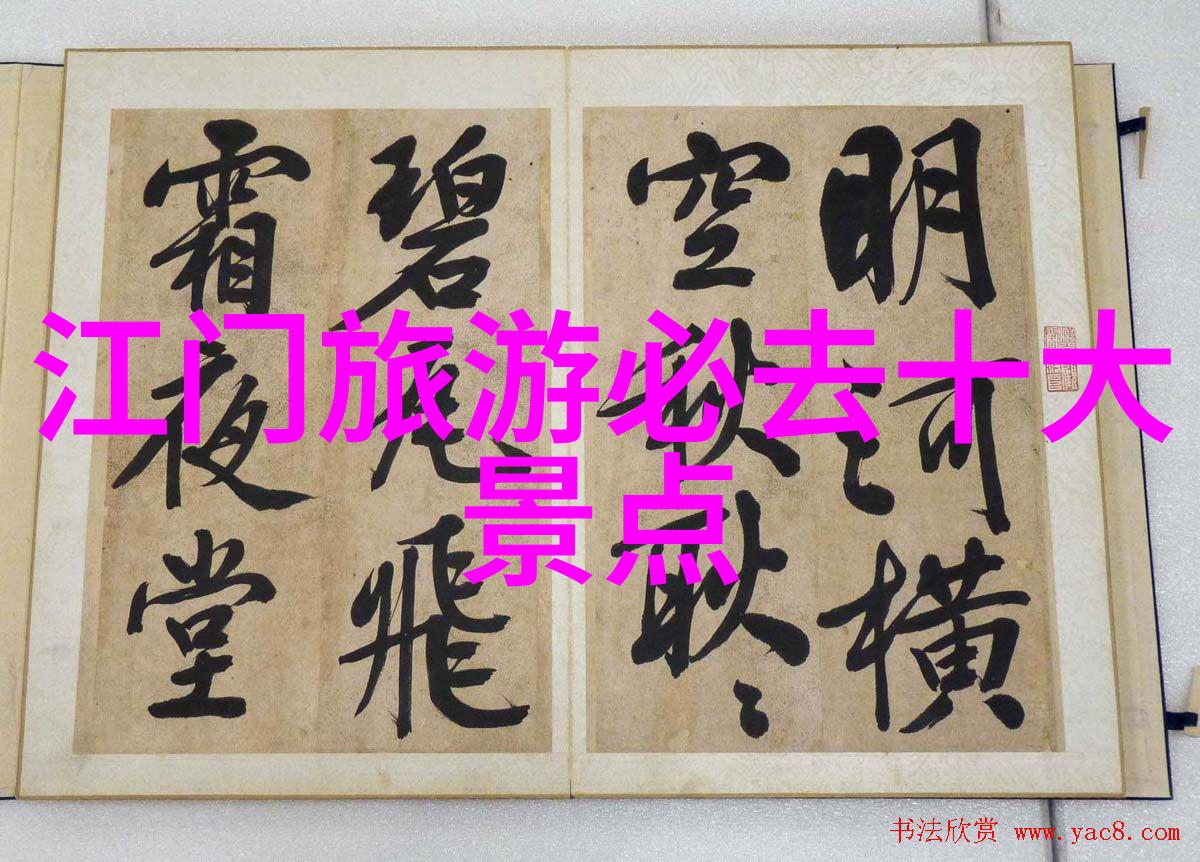 明河橫
空秋耿〻
碧瓦飛
霜夜堂
江门旅游必去十大
景点
书法欣赏 www.yac8.com